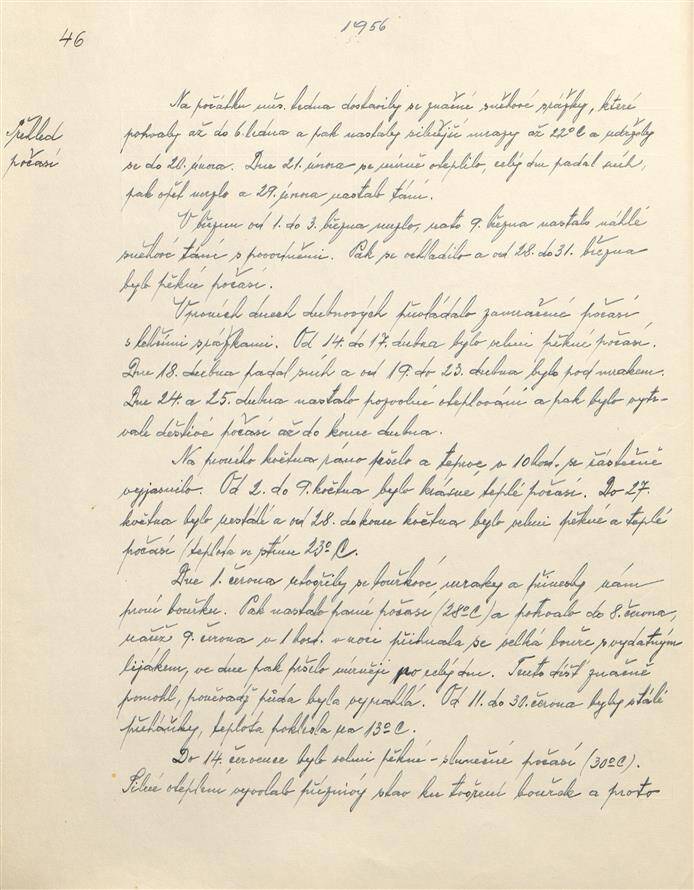 46
1956
Přehled
počasí
Na počátku měs. ledna dostavily se značné sněhové srážky, které
potrvaly až do 6. ledna a pak nastaly silnější mrazy až 22°C a udržely
se do 20. února. Dne 21. února se mírně oteplilo, celý den padal sníh,
pak opět mrzlo a 29. února nastalo tání.
V březnu od 1. do 3. března mrzlo, nato 9. března nastalo náhlé
sněhové tání s povodněmi. Pak se ochladilo a od 28. do 31. března
bylo pěkné počasí.
V prvních dnech dubnových převládalo zamračené počasí
s lehčími srážkami. Od 14. do 17. dubna bylo velmi pěkné počasí.
Dne 18. dubna padal sníh a od 19. do 23. dubna bylo pod mrakem.
Dne 24. a 25. dubna nastalo pozvolné oteplování a pak bylo vytr-
vale deštivé počasí až do konce dubna.
Na prvního května ráno pršelo a teprve v 10 hod. se částečně
vyjasnilo. Od 2. do 9. května bylo krásné, teplé počasí. Do 27.
května bylo nestálé a od 28. do konce května bylo velmi pěkné a teplé
počasí (teplota ve stínu 23°C.
Dne 1. června utvořily se bouřkové mraky a přinesly nám
první bouřku. Pak nastalo parné počasí (28°C) a potrvalo do 8. června,
načež 9. června v 1 hod. v noci přihnala se velká bouře s vydatným
lijákem, ve dne pak pršelo mírněji po celý den. Tento déšť značně
pomohl, poněvadž půda byla vyprahlá. Od 11. do 30. června byly stálé
přeháňky, teplota poklesla na 13°C.
Do 14. července bylo velmi pěkné - slunečné počasí (30°C).
Silné oteplení vyvolalo příznivý stav ku tvoření bouřek a proto